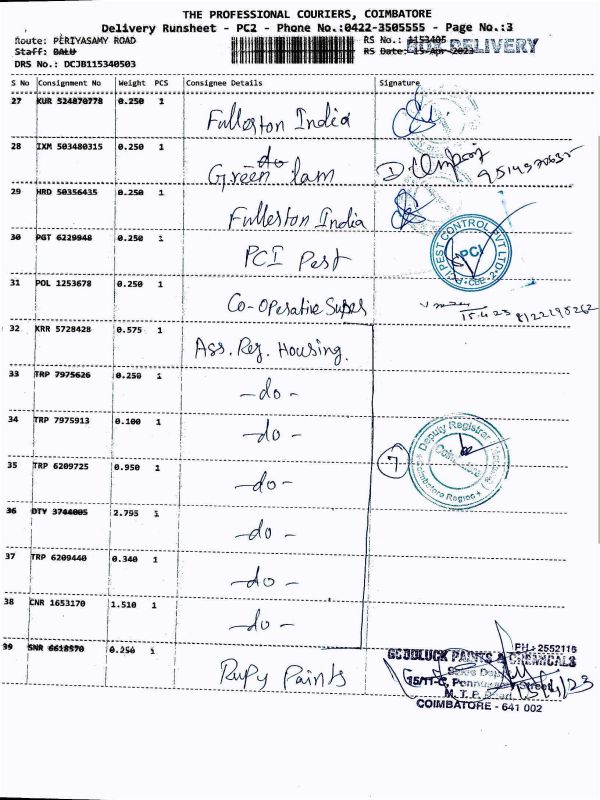 THE PROFESSIONAL COURIERS, COIMBATORE
Delivery Runsheet - PC2 - Phone No.:0422-3505555 - Page No.:3
Route: PERIYASAMY ROAD
Staff: BALU
DRS No.: DCJB115340503
RS No.: 1153405
RS Date: 15-Apr-2023
BOX DELIVERY
S No Consignment No Weight PCS Consignee Details Signature
27 KUR 524870778 0.250 1 Fullerton India
28 IXM 503480315 0.250 1 do
Green lam
29 HRD 50356435 0.250 1 Fullerston India
30 PGT 6229948 0.250 1 PCI Pest
PEST CONTROL PVT LTD
PCI
CBE-2
31 POL 1253678 0.250 1 Co-operative
15.4.23
32 KRR 5728428 0.575 1 Ass. Reg. Housing.
33 TRP 7975626 0.250 1 -do-
34 TRP 7975913 0.100 1 -do-
35 TRP 6209725 0.950 1 -do-
7
Deputy Registrar
Coimbatore
Coimbatore Region
36 DTY 3744005 2.795 1 -do-
37 TRP 6209440 0.340 1 -do-
38 CNR 1653170 1.510 1 -do-
39 SNR 6618570 0.250 1 Rupy Paints
PH: 2552116
GOODLUCK PAINTS & CHEMICALS
15/11-C,
M. T. P. Road
COIMBATORE - 641 002